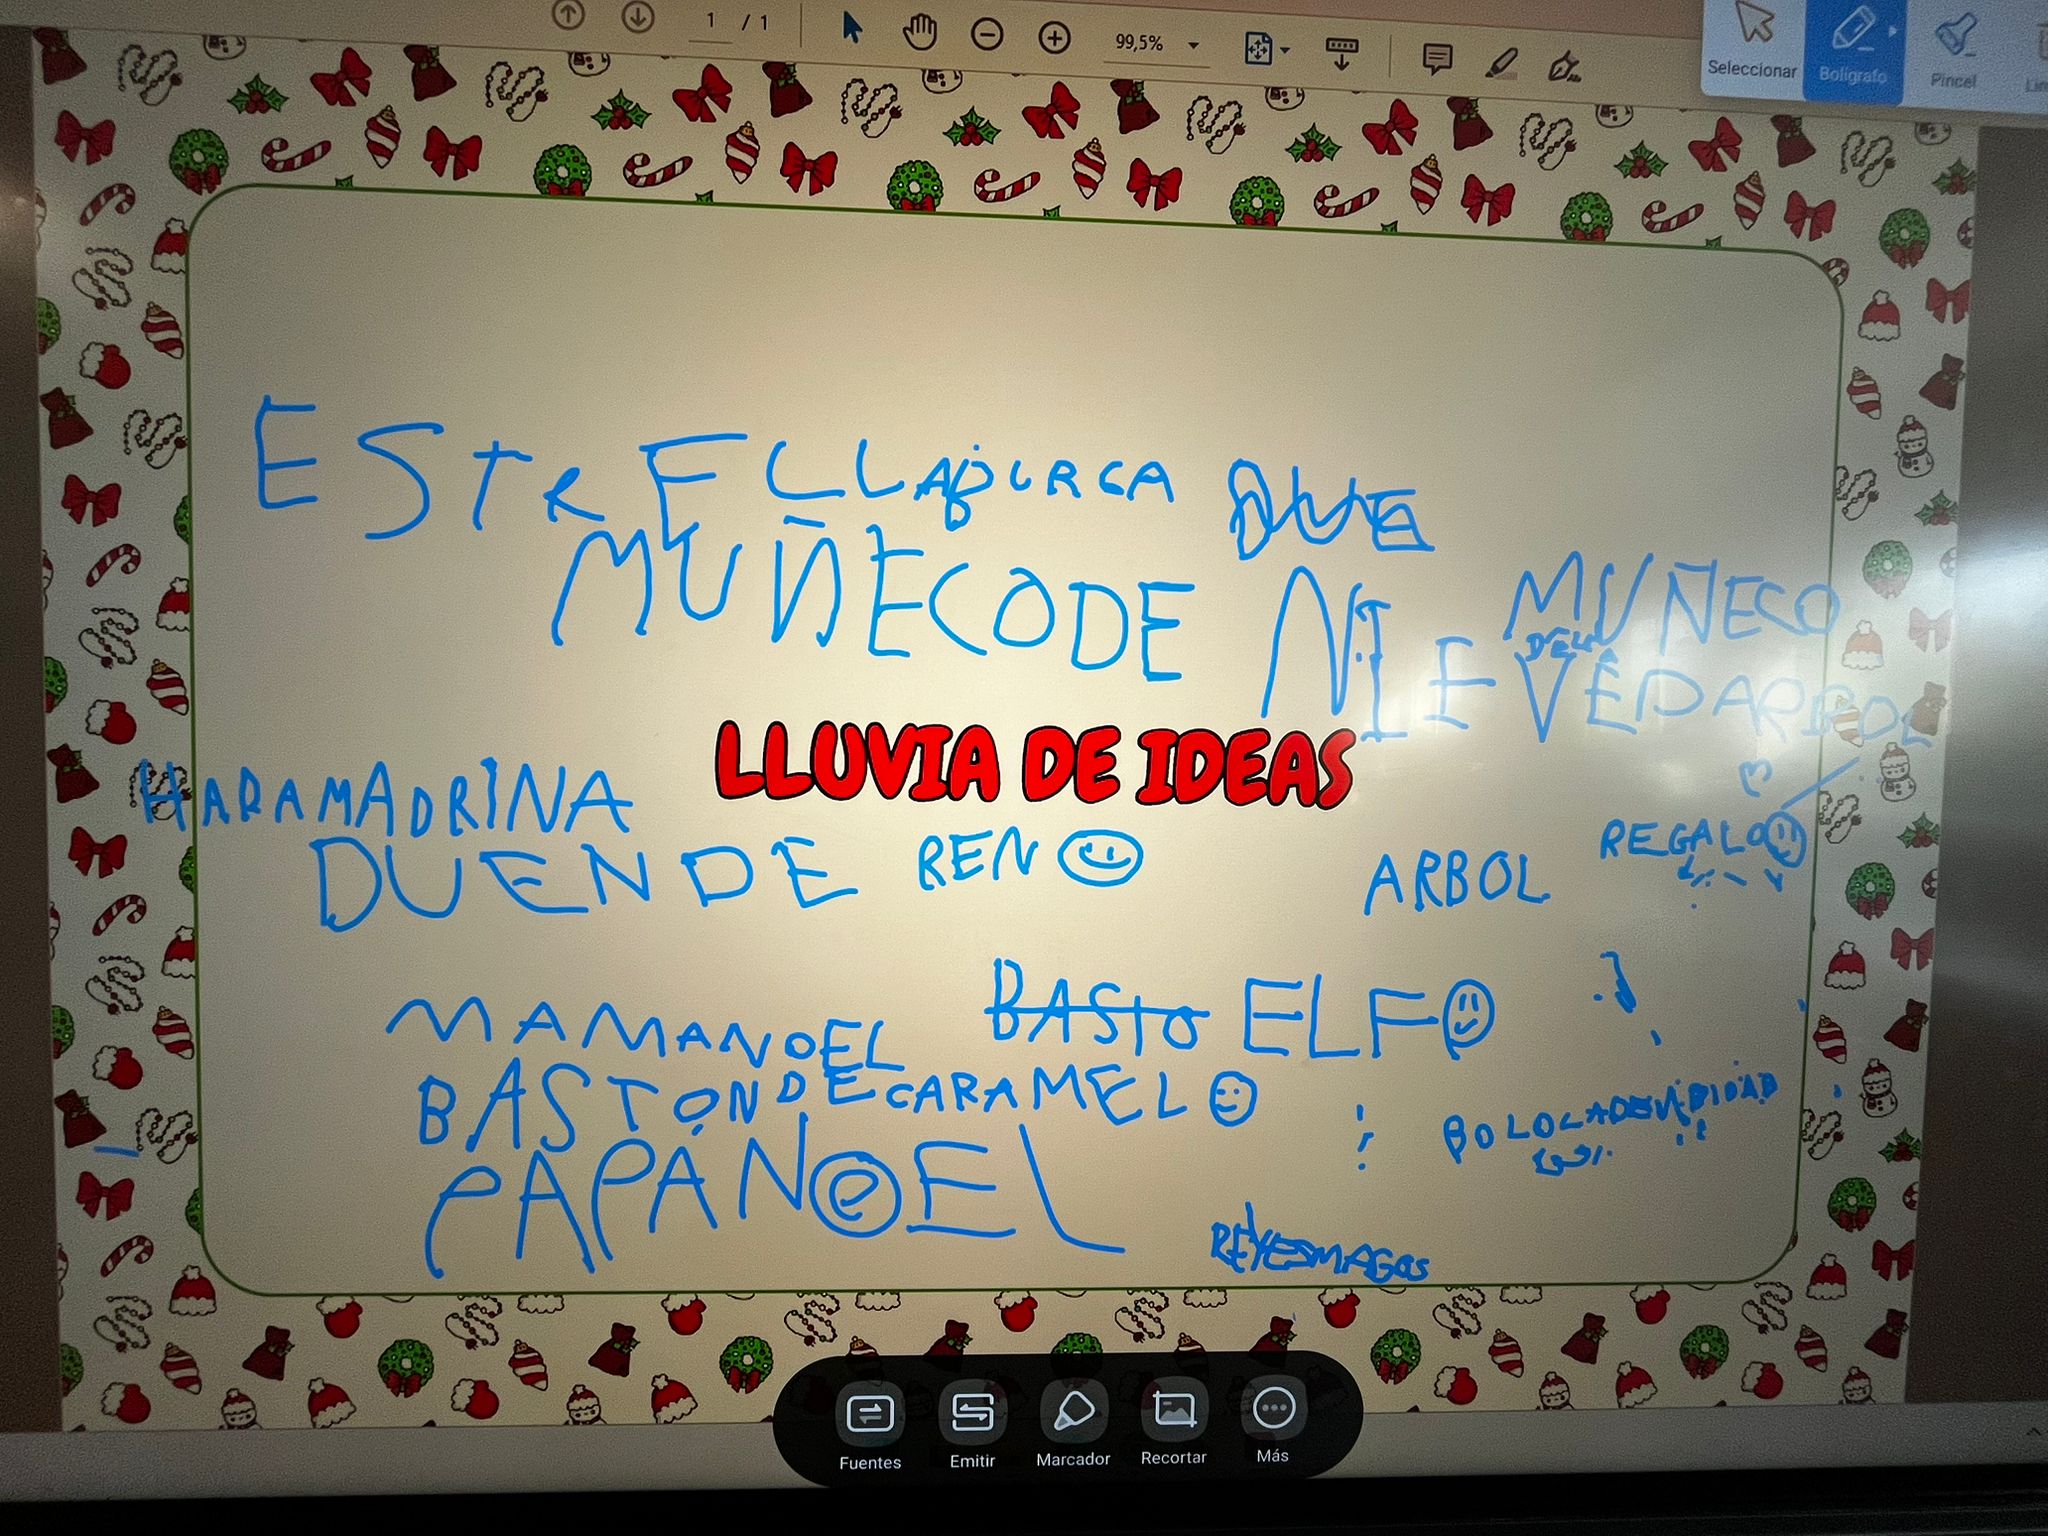 1 / 1
99,5%
Seleccionar
Bolígrafo
Pincel
ESTRELLA
MUÑECO DE NIEVE
MUÑECO
DEL
ARBOL
LLUVIA DE IDEAS
HARAMADRINA
DUENDE
RENO
ARBOL
REGALO
MAMANOEL
BASTO
ELFO
BASTON DE CARAMELO
PAPÁNOEL
REYESMAGOS
Fuentes
Emitir
Marcador
Recortar
Más